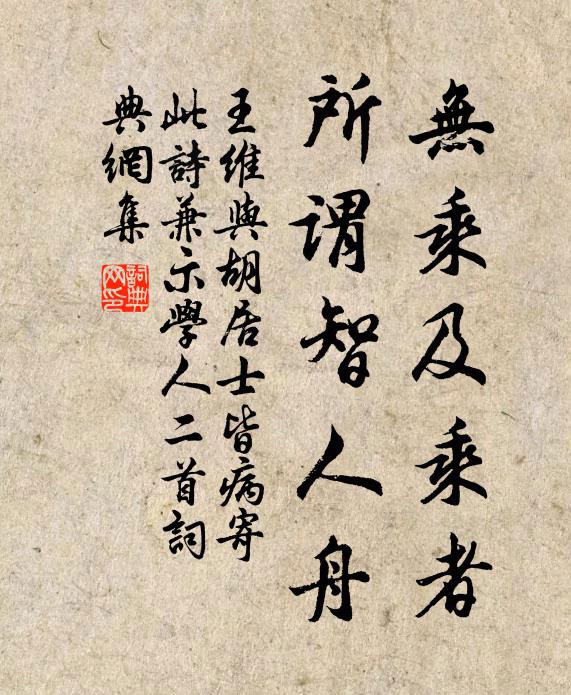 無乘及乘者
所謂智人舟
王維與胡居士皆病寄
此詩兼示學人二首詞
典網集
詞典
网印